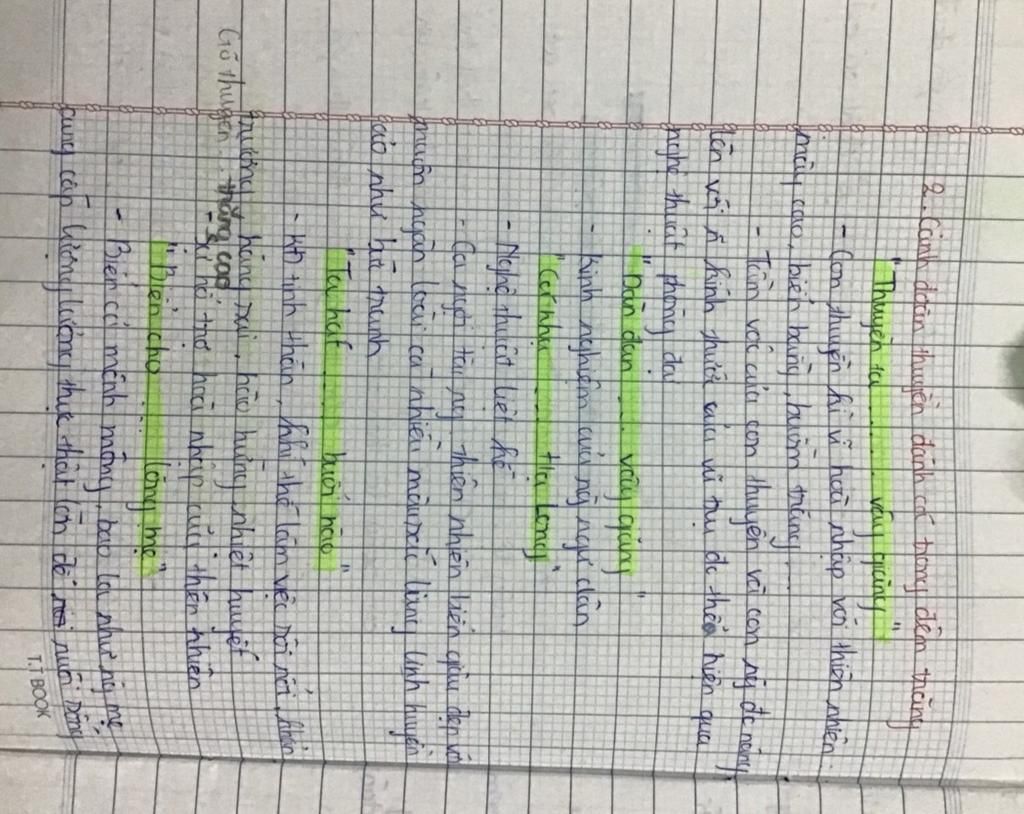 2. Cảnh đoàn thuyền đánh cá trong đêm trăng
"Thuyền ta ........ vây giăng"
- Con thuyền kì vĩ hoà nhập với thiên nhiên:
mây cao, biển bằng, buồm trăng ...
- Tầm vóc của con thuyền và con ng đc nâng
lên với kích thước của vũ trụ đc thể hiện qua
nghệ thuật phóng đại
"Dàn đan ........ vây giăng"
- Kinh nghiệm của ng ngư dân
"Cá nhụ ........ Hạ Long"
- Nghệ thuật liệt kê
- Ca ngợi tài ng thiên nhiên biển giàu đẹp với
muôn ngàn loài cá nhiều màu sắc lung linh huyền
ảo như bức tranh
"Ta hát ........ buổi nào"
- KĐ tinh thần, khí thế làm việc sôi nổi, khẩn
trương, hăng say, hào hứng, nhiệt huyết
Gõ thuyền .. trăng cao
- sự hỗ trợ hoà nhập của thiên nhiên
"Biển cho ........ lòng mẹ"
- Biển cả mênh mông, bao la như ng mẹ
cung cấp lượng lương thực thật lớn để nuôi sống
T.T BOOK